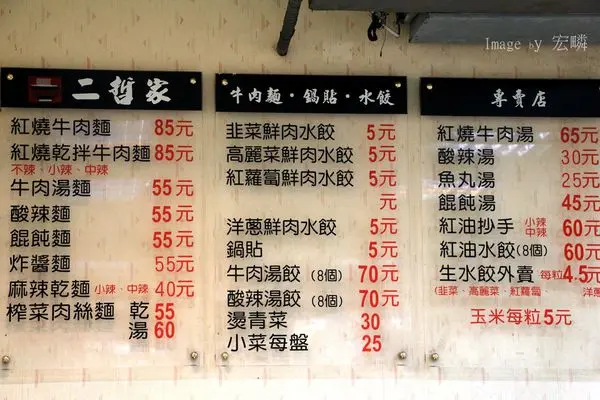 Image by 宏疄
二哲家
紅燒牛肉麵 85元
紅燒乾拌牛肉麵 85元
不辣、小辣、中辣
牛肉湯麵 55元
酸辣麵 55元
餛飩麵 55元
炸醬麵 55元
麻辣乾麵 小辣、中辣 40元
榨菜肉絲麵 乾 55
湯 60
牛肉麵·鍋貼·水餃
韭菜鮮肉水餃 5元
高麗菜鮮肉水餃 5元
紅蘿蔔鮮肉水餃 5元
元
洋蔥鮮肉水餃 5元
鍋貼 5元
牛肉湯餃 (8個) 70元
酸辣湯餃 (8個) 70元
燙青菜 30
小菜每盤 25
專賣店
紅燒牛肉湯 65元
酸辣湯 30元
魚丸湯 25元
餛飩湯 45元
紅油抄手 小辣 中辣 60元
紅油水餃(8個) 60元
生水餃外賣 每粒4.5元
(韭菜、高麗菜、紅蘿蔔、 洋蔥)
玉米每粒5元